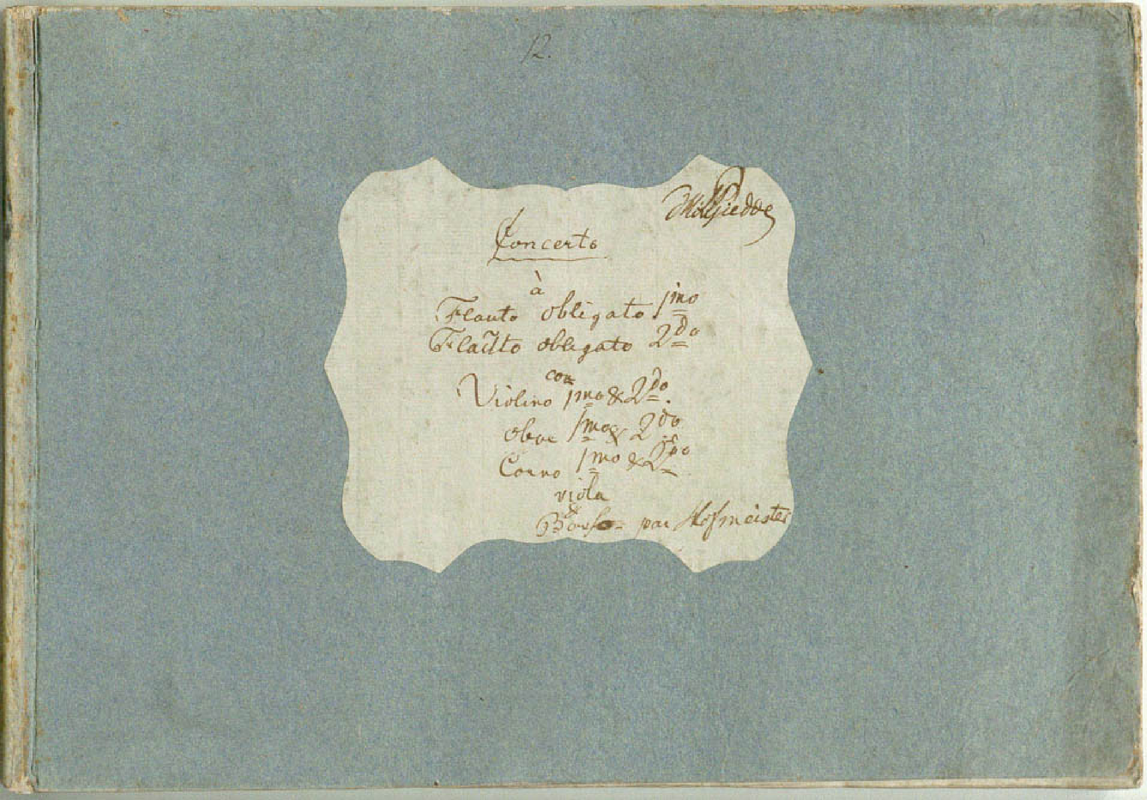 12.
Concerto
à
Flauto obligato 1mo
Flauto obligato 2do
con
Violino 1mo & 2do.
oboe 1mo & 2do
Corno 1mo & 2do
viola
&
Basso par Hofmeister